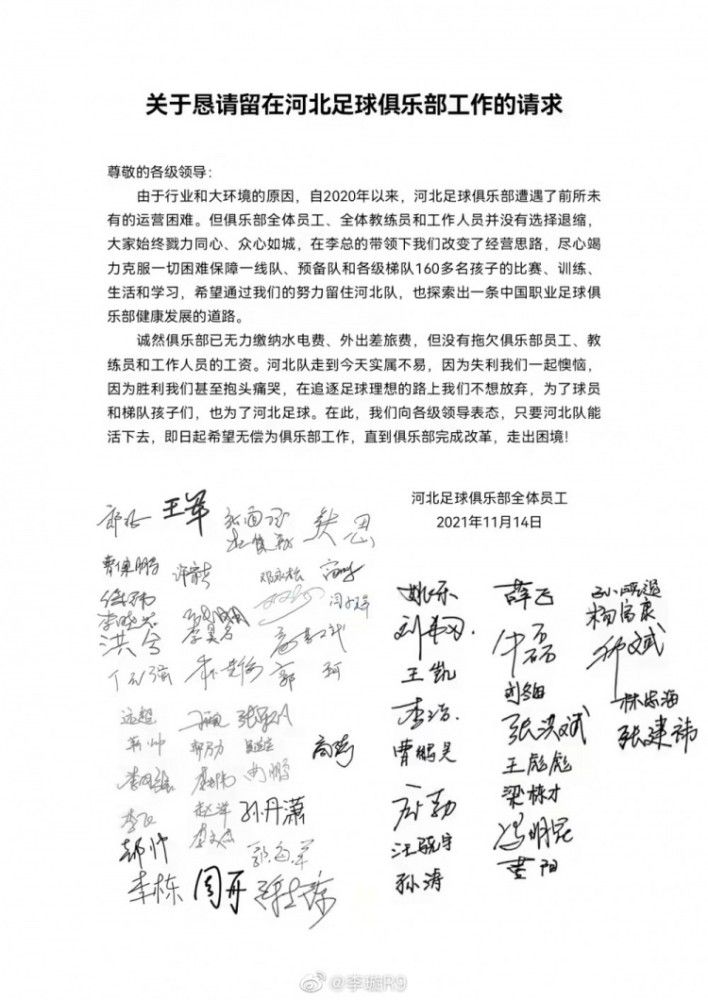 关于恳请留在河北足球俱乐部工作的请求
尊敬的各级领导：
由于行业和大环境的原因，自2020年以来，河北足球俱乐部遭遇了前所未
有的运营困难。但俱乐部全体员工、全体教练员和工作人员并没有选择退缩，
大家始终戮力同心、众心如城，在李总的带领下我们改变了经营思路，尽心竭
力克服一切困难保障一线队、预备队和各级梯队160多名孩子的比赛、训练、
生活和学习，希望通过我们的努力留住河北队，也探索出一条中国职业足球俱
乐部健康发展的道路。
诚然俱乐部已无力缴纳水电费、外出差旅费，但没有拖欠俱乐部员工、教
练员和工作人员的工资。河北队走到今天实属不易，因为失利我们一起懊恼，
因为胜利我们甚至抱头痛哭，在追逐足球理想的路上我们不想放弃，为了球员
和梯队孩子们，也为了河北足球。在此，我们向各级领导表态，只要河北队能
活下去，即日起希望无偿为俱乐部工作，直到俱乐部完成改革，走出困境！
河北足球俱乐部全体员工
2021年11月14日
王军
曹保鹏
洪兮
郭 珂
远超
孙丹潇
李栋 周冉
姚乐
王凯
李浩
曹鹏昊
孙涛
薛飞
张洪斌
王彪彪
梁栋才
冯明昆
杨富康
林志海
张建祎
@李璇R9